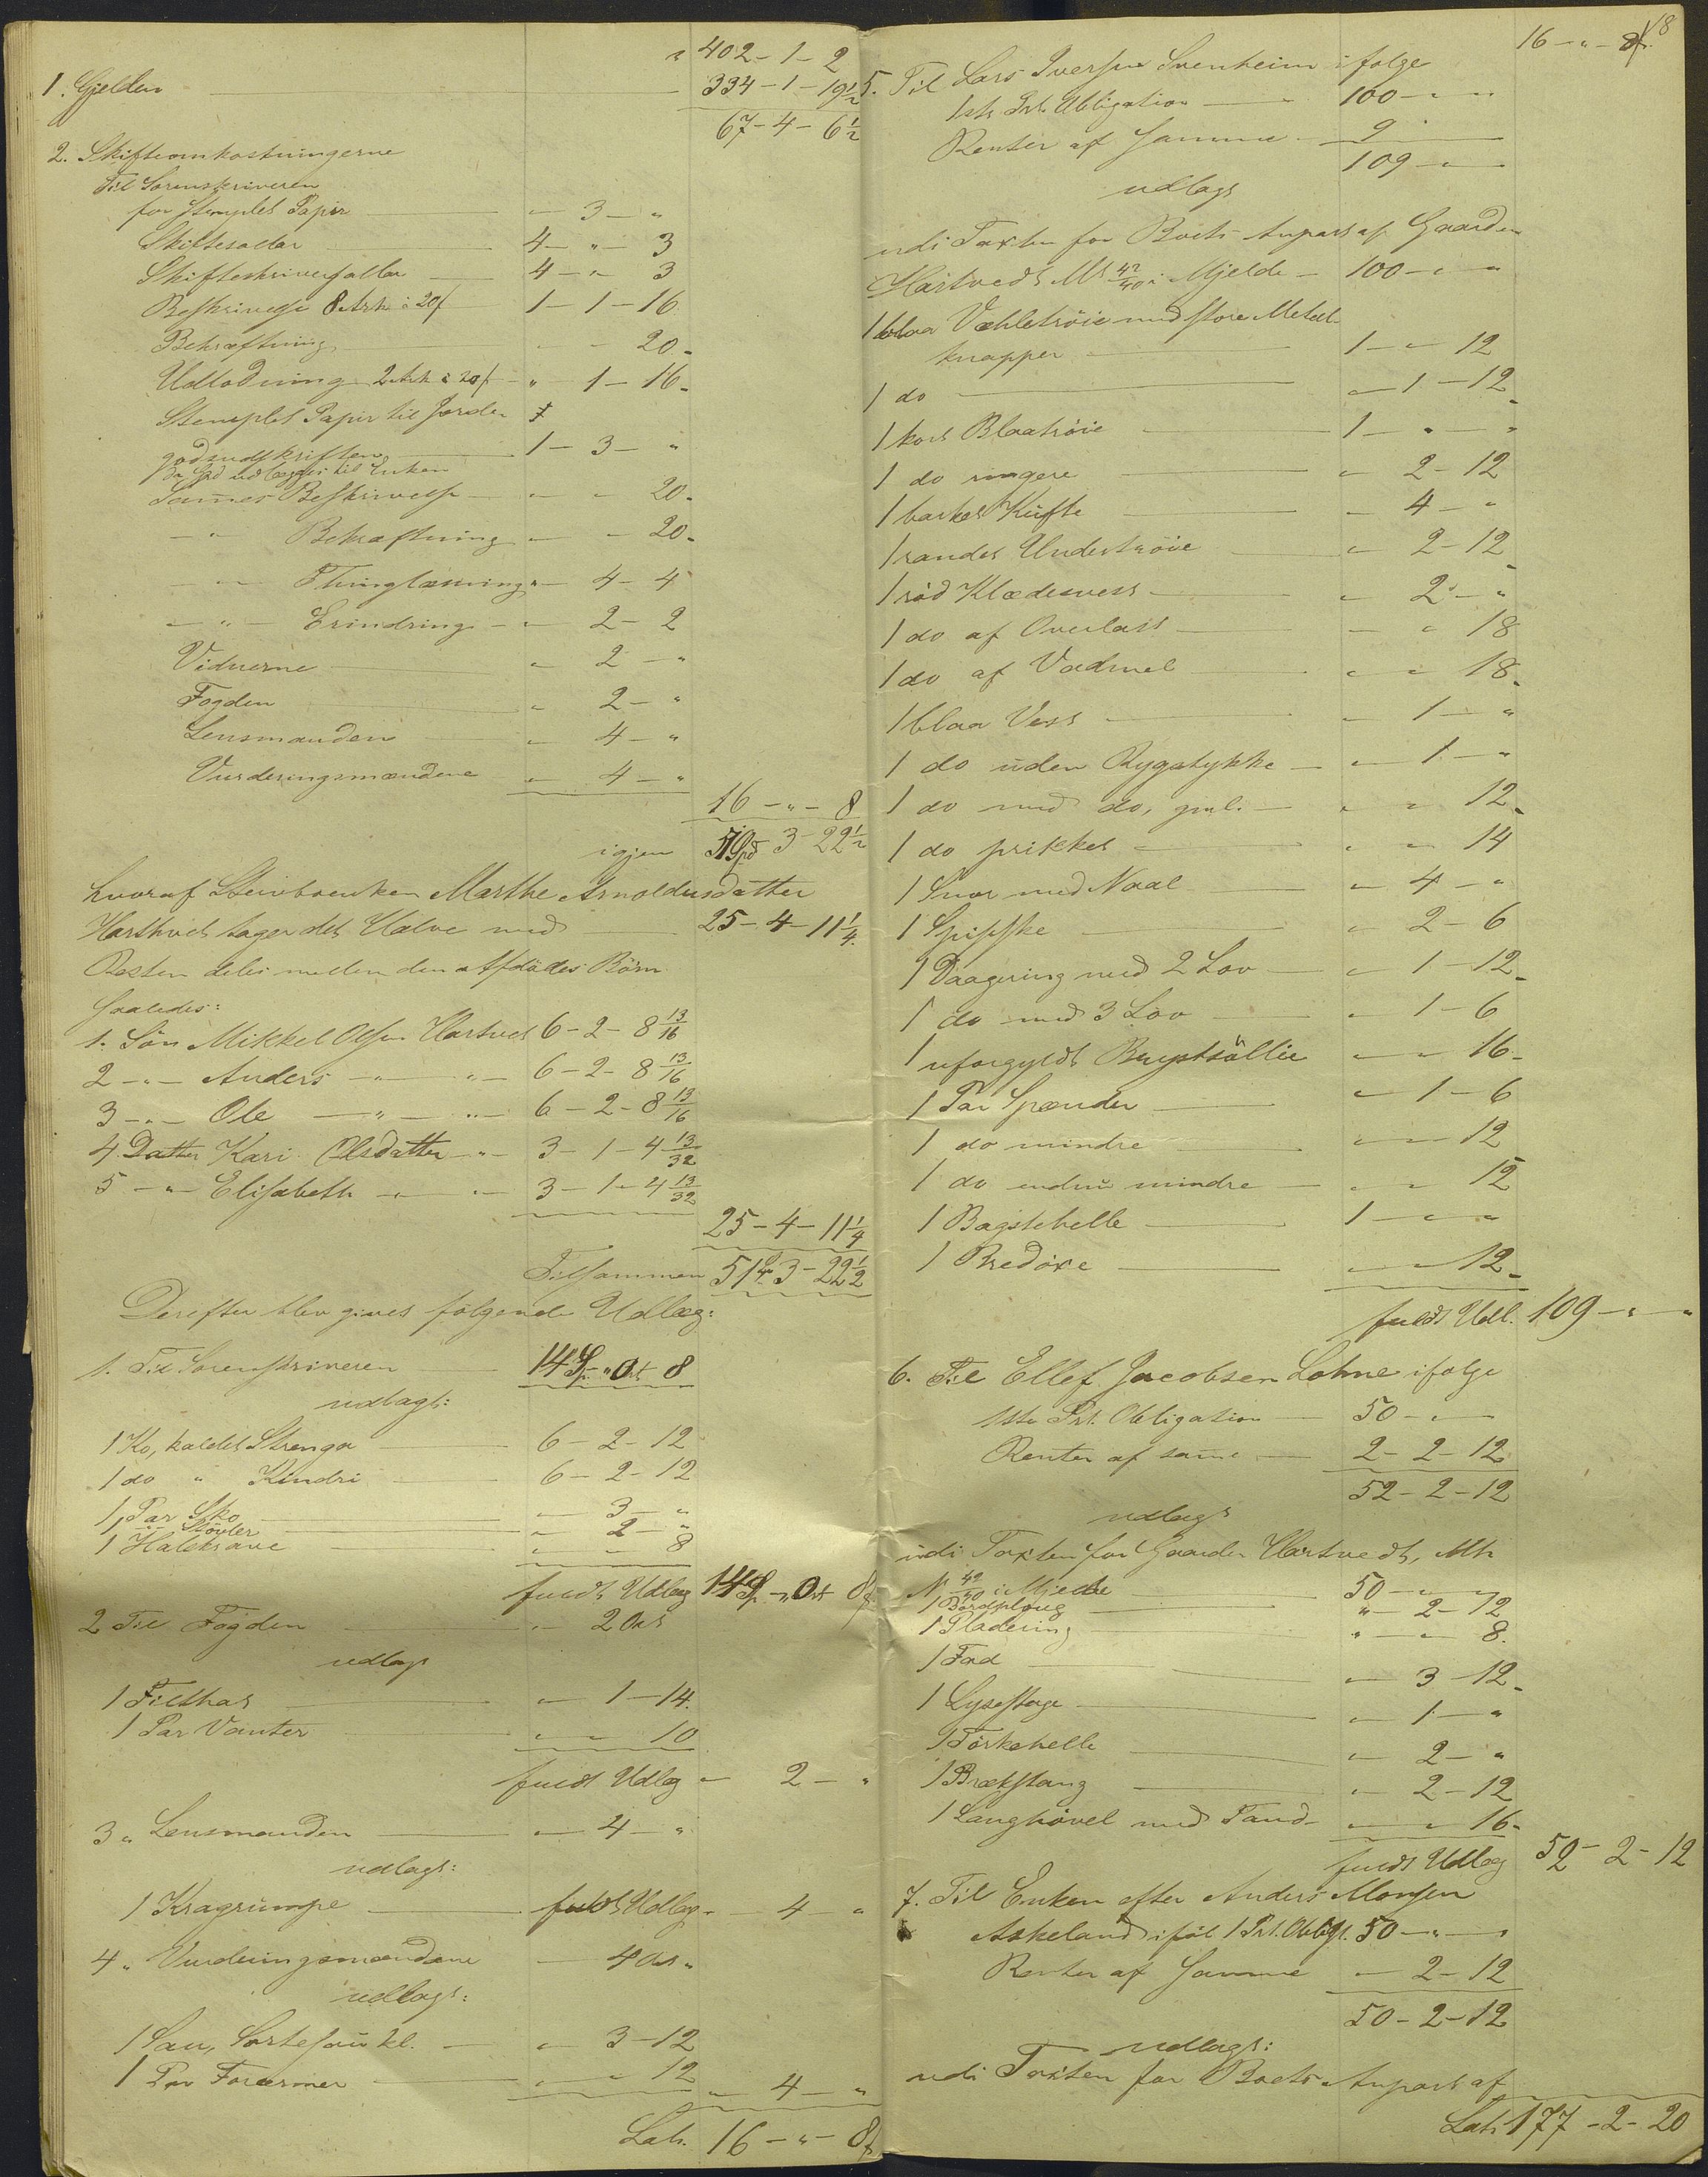 " 402 - 1 - 2
1. Gjelden - 334 - 1 - 19½
67 - 4 - 6½
2. Skifteomkostningerne
Til Sorenskriveren
for stemplet Papir " 3 - "
Skiftesallar 4 - " - 3
Skifteskriversallar 4 - " - 3
Beskrivelse 8 Ark à 20 f 1 - 1 - 16
Bekræftning - - 20.
Udlodning 2 Ark à 20 f " 1 - 16.
Stemplet Papir til Jorde-
godsudskriften 1 - 3 - "
der Spd udlægges til Enken
Sammes Beskrivelse - - 20.
- " Bekræftning - - 20.
- " - Thinglæsning " - 4 - 4
- " - Erindring - - 2 - 2
Vidnerne - 2 - "
Fogden - 2 - "
Lensmanden - 4 - "
Vurderingsmændene - 4 - "
16 - " - 8
igjen 51 Spd 3 - 22½
hvoraf Stervboenken Marthe Arnoldusdatter
Harthvet tager det Halve med 25 - 4 - 11¼.
Resten deles mellem den Afdødes Børn
saaledes:
1. Søn Mikkel Olsen Hartvet 6 - 2 - 8 13/16
2 - " - Anders - " - " - 6 - 2 - 8 13/16
3 - " - Ole - " - " - 6 - 2 - 8 13/16
4. Datter Kari Olsdatter - " - 3 - 1 - 4 13/32
5 - " - Elisabeth - " - " - 3 - 1 - 4 13/32
25 - 4 - 11¼
Tilsammen 51 Sp 3 - 22½
Derefter blev givet følgende Udlæg:
1. Til Sorenskriveren 14 Sp - " Ort 8
udlagt:
1 Ko, kaldet Strenga 6 - 2 - 12
1 do " Kindri 6 - 2 - 12
1 Par Sko - 3 - "
1 " Støvler " 2 - "
1 Halskrave " - 8
fuldt Udlæg 14 Sp - " Ort 8 f
2 Til Fogden " - 2 Ort
udlagt
1 Filthat - 1 - 14.
1 Par Vanter - - 10
fuldt Udlæg - 2 - "
3 " Lensmanden - 4 - "
udlagt:
1 Kragrumpe fuldt Udlæg - - 4 - "
4 " Vurderingsmændene - 4 Ort "
udlagt:
1 Sau, Sortesau kl. - 3 - 12
1 Par Forærmer - - 12
- 4 - "
Lat. 16 - " - 8 f
18
16 - " - 8 f.
5. Til Lars Iversen Svenheim ifølge
1ste Prt. Obligation 100 - " - "
Renter af Samme 9 "
109 - " -
udlagt
udi Taxten for Boets Anpart af Gaarden
Hartvedt Mt 42/40 i Mjelde - 100 - " - "
1 blaa Væhletrøie med store Metal-
knapper 1 - - 12
1 do - 1 - 12.
1 kort Blaatrøie 1 - " - "
1 do ringere " 2 - 12
1 barket Kufte - 4 - "
1 randet Undertrøie " 2 - 12.
1 rød Klædesvest - 2 - "
1 do af Overlast - " 18
1 do af Vadmel - - 18.
1 blaa Vest - 1 - "
1 do uden Rygstykke - - 1 - "
1 do med do, gml. " - 12.
1 do prikket " - 14
1 Snor med Naal - 4 - "
1 - 2 - 6
1 Daagering med 2 Lov - 1 - 12.
1 do med 3 Lov - 1 - 6
1 uforgyldt Brystsøllie - - 16.
1 Par Spænder - 1 - 6
1 do mindre - - 12
1 do endnu mindre - - 12
1 Bagstehelle 1 - - -
1 Bredøxe - - 12.
fuldt Udl. 109 - " - "
6. Til Ellef Jacobsen Lohne ifølge
1ste Prt. Obligation 50 - " -
Renter af samme 2 - 2 - 12
52 - 2 - 12
udlagt
udi Taxten for Gaarden Hartvedt, Mt
N 42/40 i Mjelde 50 - " - "
1 Bordploug " - 2 - 12
1 Pladering " - - 8.
1 Fad - 3 - 12.
1 Lysestage - 1 - "
1 Tørkehelle - 2 - "
1 Brækstang " 2 - 12
1 Langhøvel med Tand - - " 16.
fuldt Udlæg 52 - 2 - 12
7. Til Enken efter Anders Monsen
Askeland iføl 1 Prt. Obligt. 50 - " -
Renter af Samme - 2 - 12
50 - 2 - 12
udlagt:
udi Taxten for Boets Anpart af
Lat. 177 - 2 - 20